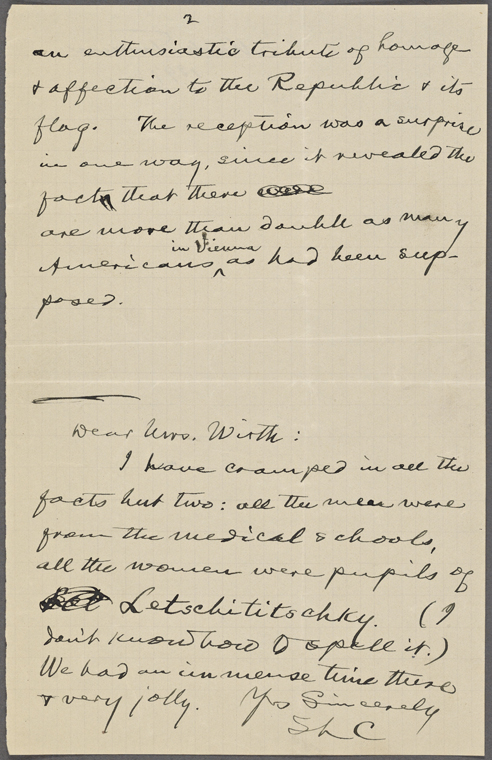 2
an enthusiastic tribute of homage
& affection to the Republic & its
flag. The reception was a surprise
in one way, since it revealed the
fact that there were
are more than double as many
in Vienna
Americans, as had been sup-
posed.
Dear Mrs. Wirth:
I have cramped in all the
facts but two: all the men were
from the medical schools,
all the women were pupils of
Letschititschky. (I
don't know how to spell it.)
We had an immense time there
& very jolly. Yrs Sincerely
SLC